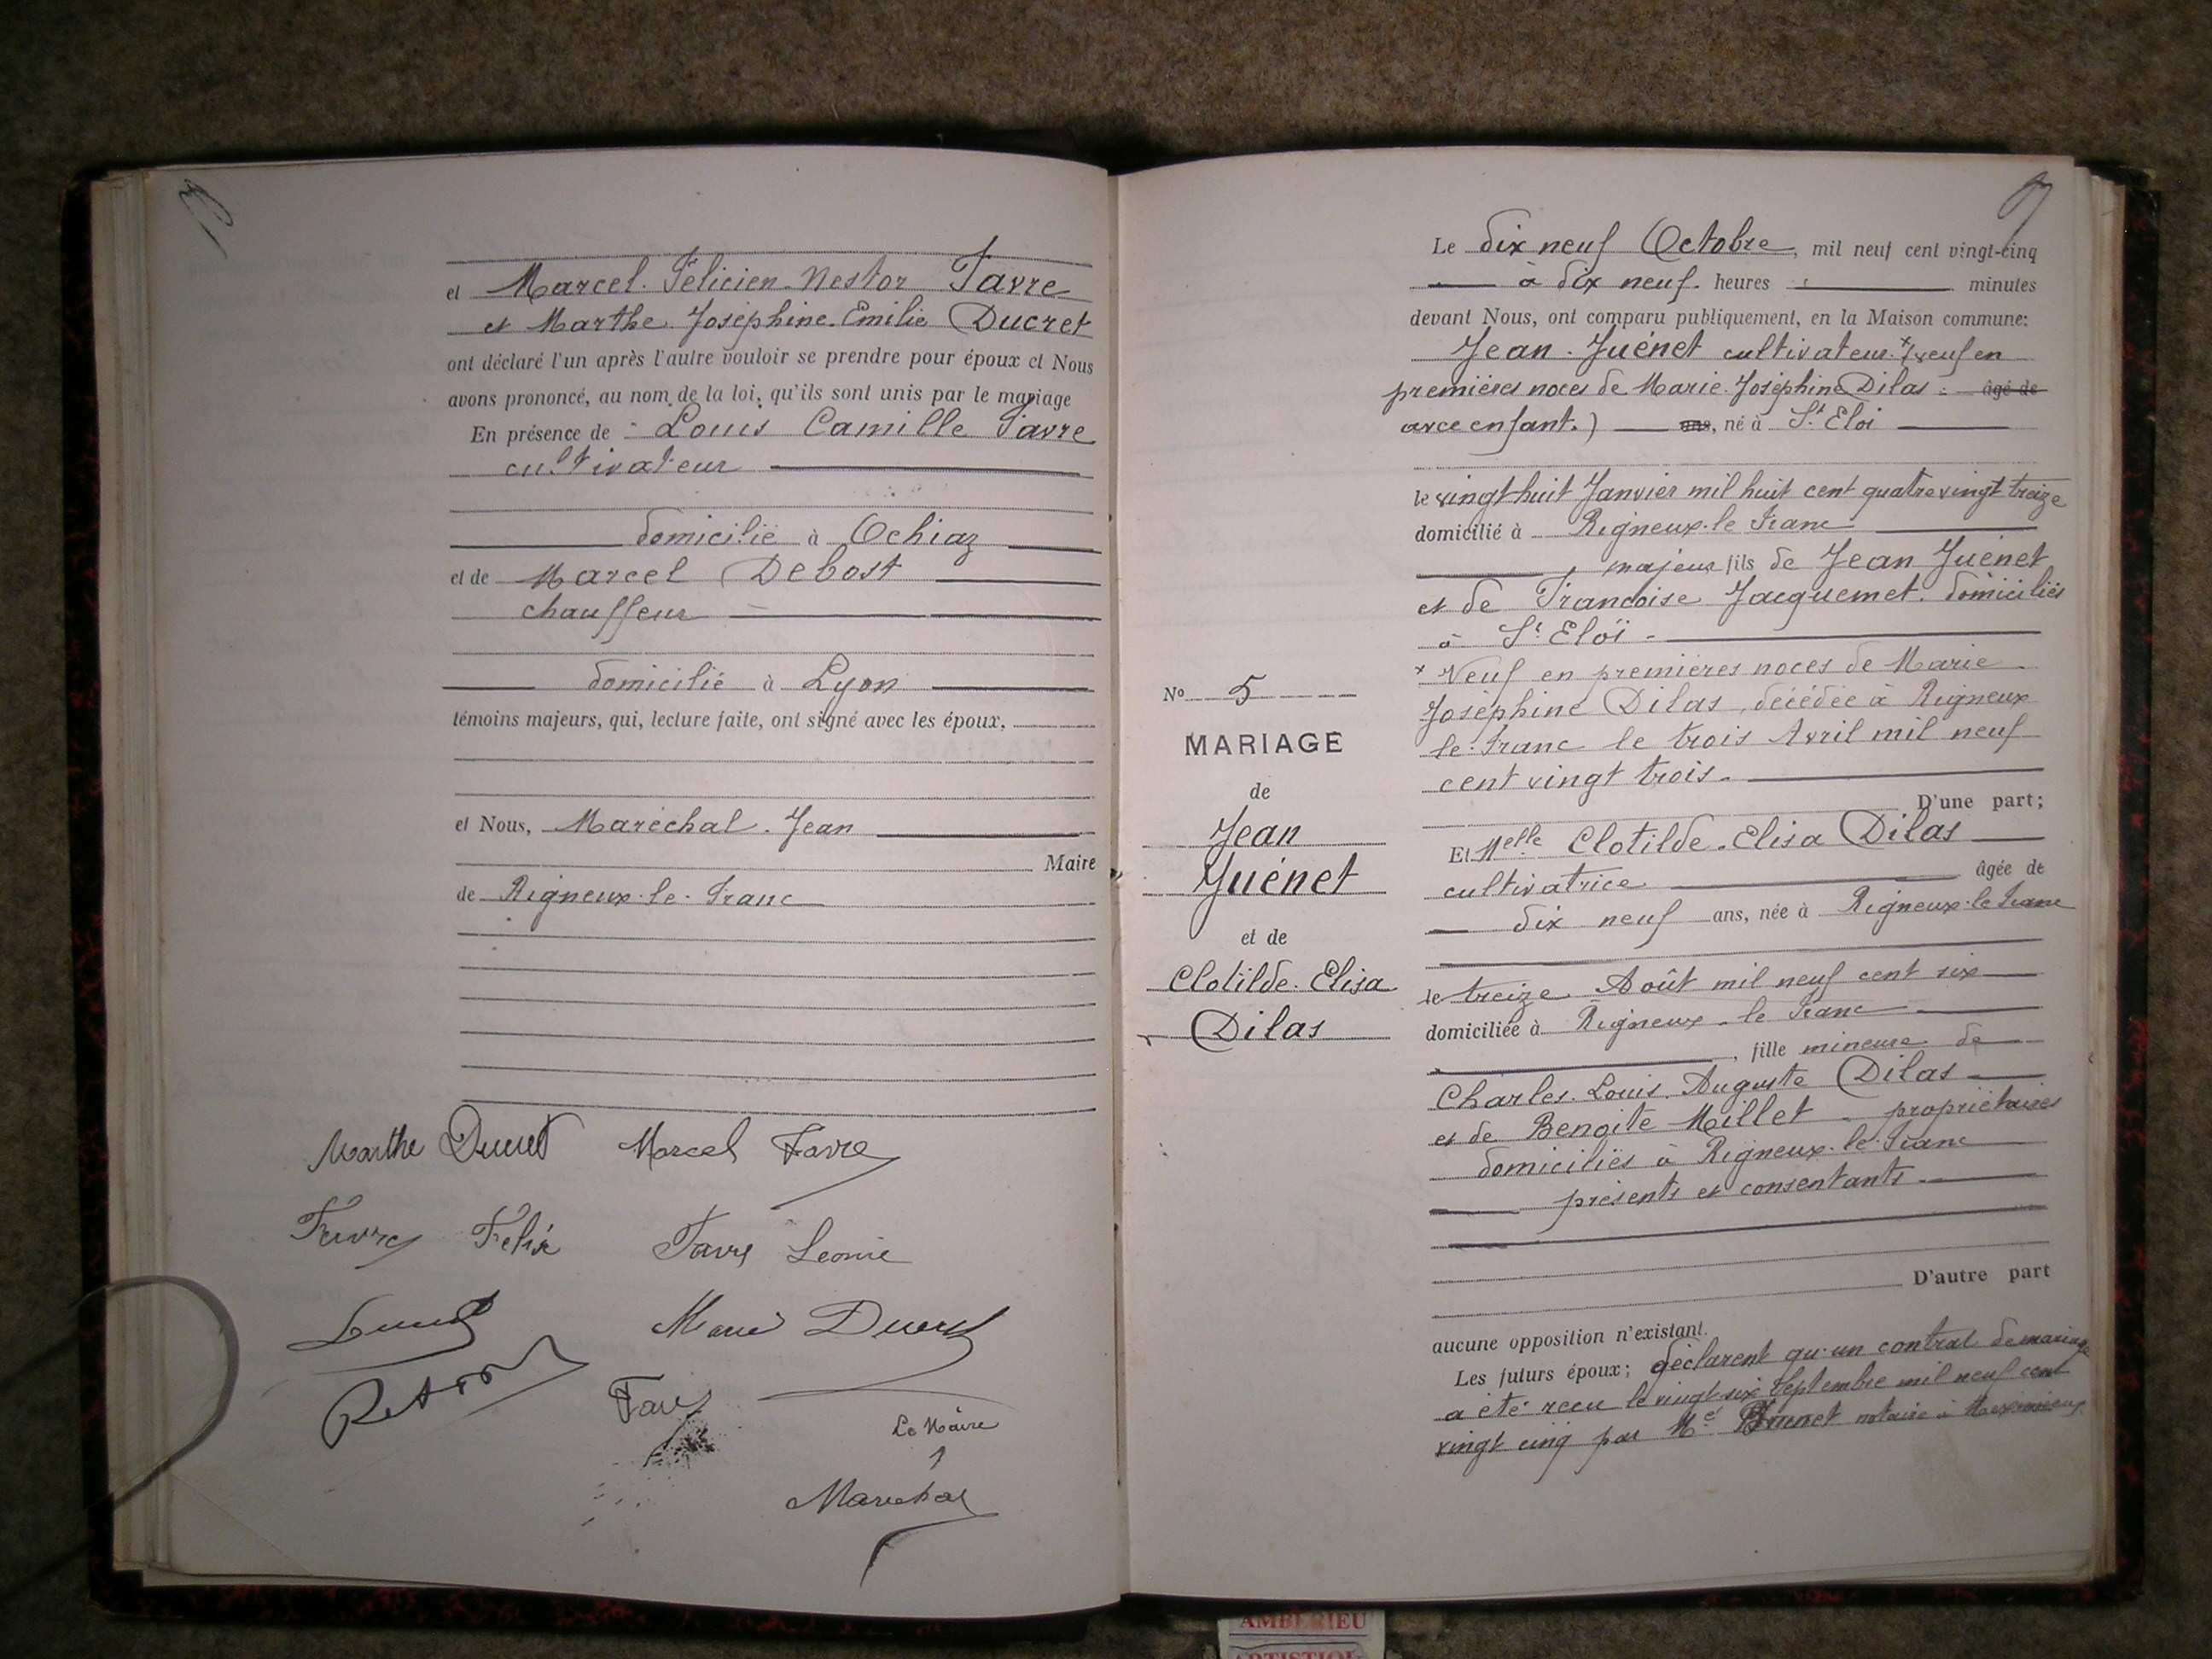 et Marcel Félicien Nestor Favre
et Marthe Joséphine Emilie Ducret
ont déclaré l'un après l'autre vouloir se prendre pour époux et Nous
avons prononcé, au nom de la loi, qu'ils sont unis par le mariage
En présence de Louis Camille Favre
cultivateur
domicilié à Ochiaz
et de Marcel Debost
chauffeur
domicilié à Lyon
témoins majeurs, qui, lecture faite, ont signé avec les époux,
et Nous, Maréchal Jean
Maire
de Rigneux-le-Franc
Marthe Ducret Marcel Favre
Favre Felix Favre Leonie
Ducret
Favre
Le Maire
Marechal
Le dix neuf Octobre, mil neuf cent vingt-cinq
à dix neuf heures minutes
devant Nous, ont comparu publiquement, en la Maison commune:
Jean Juénet cultivateur x (veuf en
premières noces de Marie Joséphine Dilas : âgé de
avec enfant.) ans, né à St Eloi
le vingt huit Janvier mil huit cent quatre vingt treize
domicilié à Rigneux-le-Franc
majeur fils de Jean Juénet
et de Françoise Jacquemet domiciliés
à St Eloï
x Veuf en premières noces de Marie
Joséphine Dilas, décédée à Rigneux
le-Franc le trois Avril mil neuf
cent vingt trois.
D'une part;
Et Melle Clotilde-Elisa Dilas
cultivatrice âgée de
dix neuf ans, née à Rigneux-le-Franc
le treize Août mil neuf cent six
domiciliée à Rigneux-le-Franc
, fille mineure de
Charles Louis Auguste Dilas
et de Benoite Millet propriétaires
domiciliés à Rigneux-le-Franc
présents et consentants
D'autre part
aucune opposition n'existant.
Les futurs époux; déclarent qu'un contrat de mariage
a été reçu le vingt six Septembre mil neuf cent
vingt cinq par Me Brunet notaire à Meximieux
No 5
MARIAGE
de
Jean
Juénet
et de
Clotilde-Elisa
Dilas
AMBERIEU